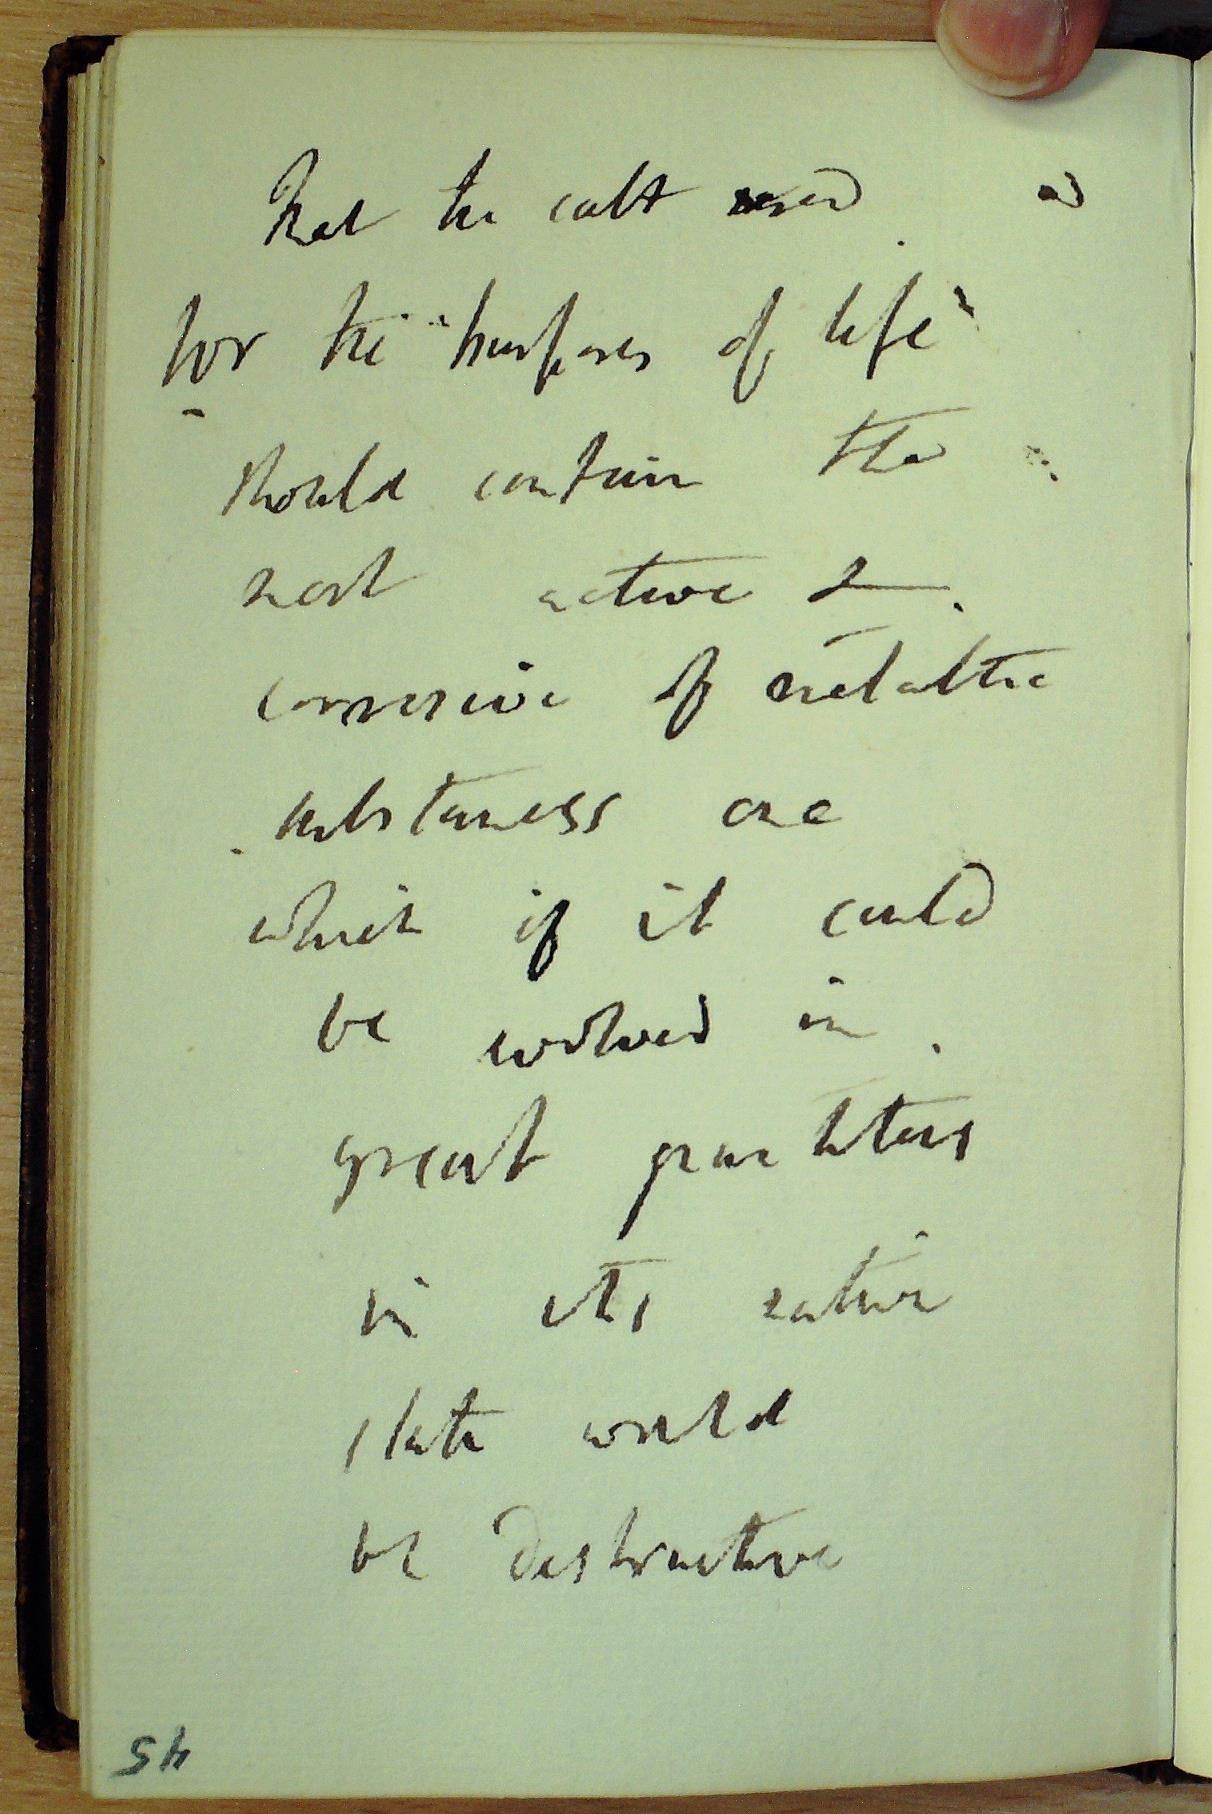 that the salt used
for the purposes of life
should contain the
most active &
corrosive of metallic
substances one
which if it could
be evolved in
great quantities
in its native
state would
be destructive
45